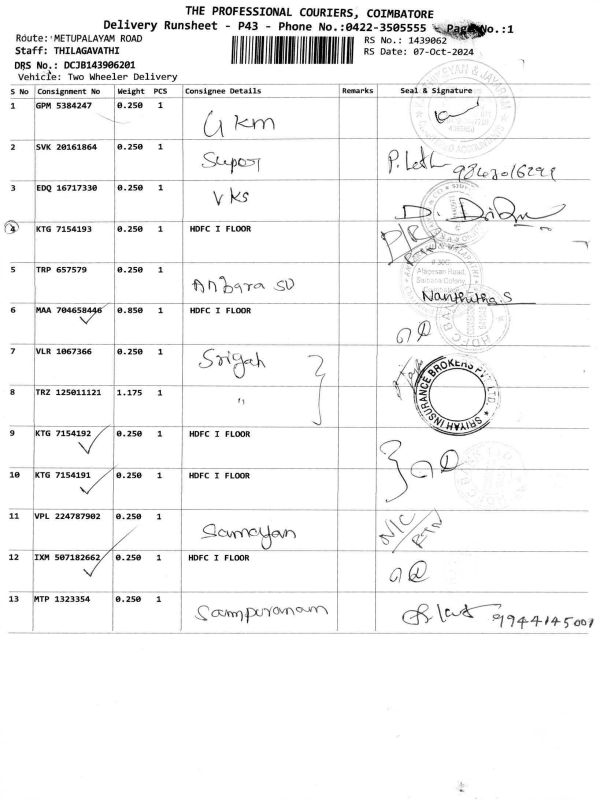 THE PROFESSIONAL COURIERS, COIMBATORE
Delivery Runsheet - P43 - Phone No.:0422-3505555 - Page No.:1
Route: METUPALAYAM ROAD
RS No.: 1439062
Staff: THILAGAVATHI
RS Date: 07-Oct-2024
DRS No.: DCJB143906201
Vehicle: Two Wheeler Delivery
S No Consignment No Weight PCS Consignee Details Remarks Seal & Signature
1 GPM 5384247 0.250 1 GKM
2 SVK 20161864 0.250 1 Supoj
3 EDQ 16717330 0.250 1 VKS
4 KTG 7154193 0.250 1 HDFC I FLOOR
5 TRP 657579 0.250 1 Nanthitha.S
6 MAA 704658446 0.850 1 HDFC I FLOOR
7 VLR 1067366 0.250 1 Sriyah
8 TRZ 125011121 1.175 1 "
SRIYAH INSURANCE BROKERS PVT. LTD.
9 KTG 7154192 0.250 1 HDFC I FLOOR
10 KTG 7154191 0.250 1 HDFC I FLOOR
11 VPL 224787902 0.250 1 Samayan N/C RTN
12 IXM 507182662 0.250 1 HDFC I FLOOR
13 MTP 1323354 0.250 1 Sampuranam 9944145001